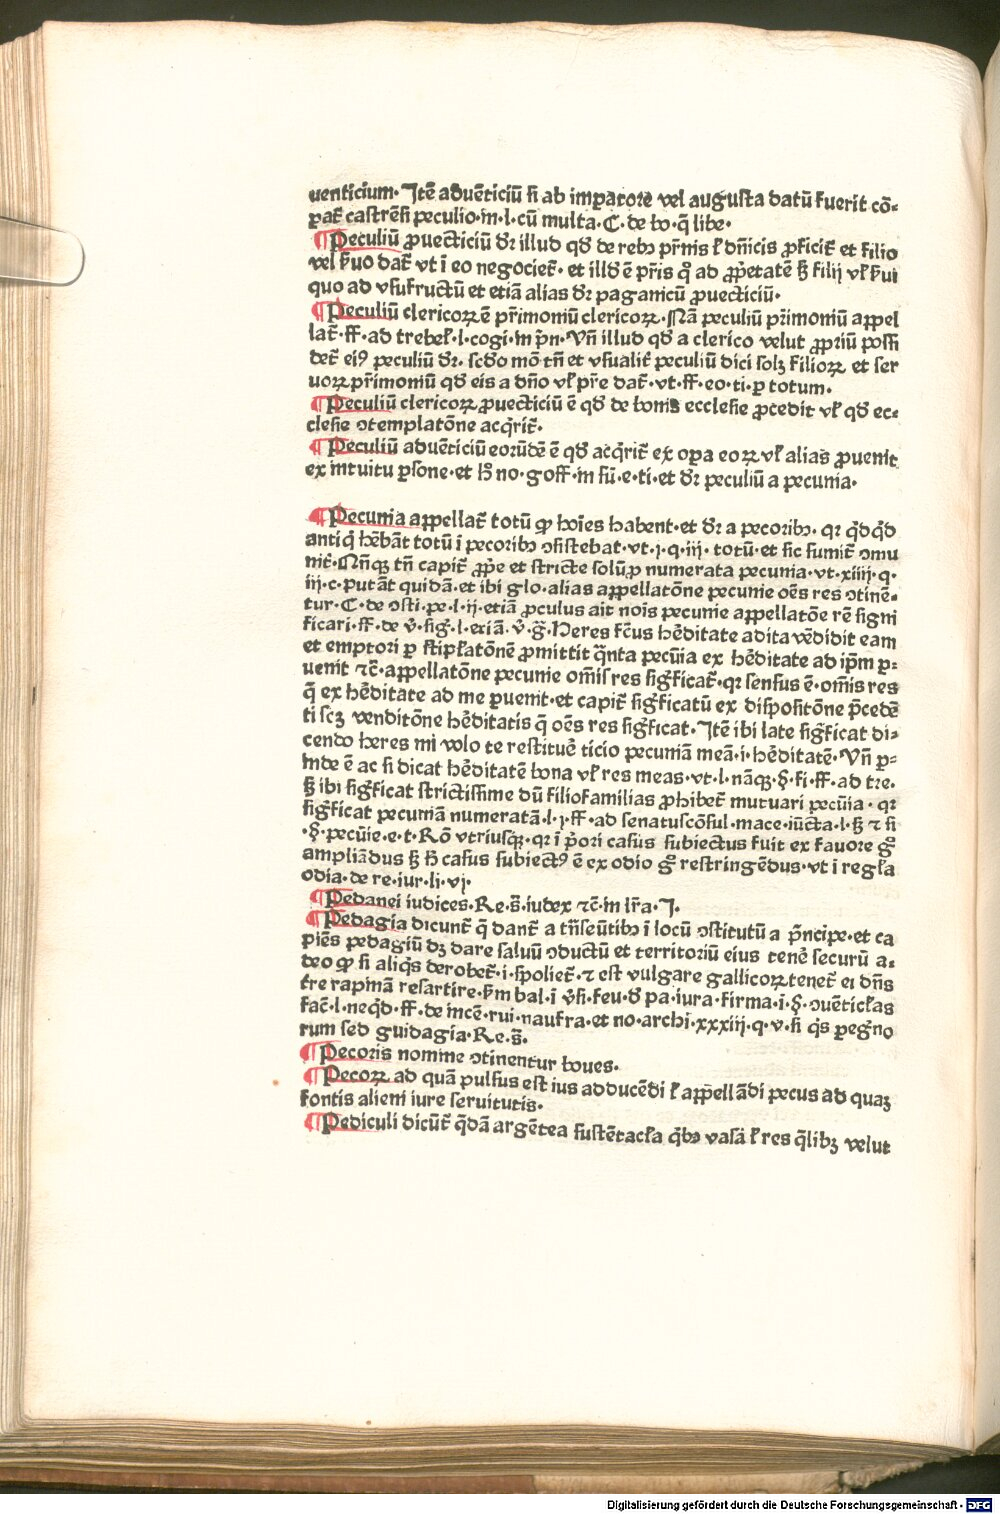 uenticium. Itē aduēticiū si ab imparore vel augusta datū fuerit cō-
pat̄ castrēsi peculio. in. l. cū multa. C. de bo. q̄ libe.
¶ Peculiū ꝓuecticiū dr̄ illud qd̄ de rebꝰ pr̄nis ł dn̄icis ꝓficit̄ et filio
vel s̄uo dat̄ vt ī eo negociet̄. et illd̄ ē pr̄is q̄ ad ꝓp̄etatē sꝫ filij vł s̄ui
quo ad vsufructū et etiā alias dr̄ paganicū ꝓuecticiū.
¶ Peculiū clericoꝝ ē pr̄imoniū clericoꝝ. Nā peculiū pr̄imoniū appel
lat̄. ff. ad trebeł. l. cogi. in p̄n. Vn̄ illud qd̄ a clerico velut ꝓpriū possi
det̄ eiꝰ peculiū dr̄. scd̄o mō tn̄ et vsualit̄ peculiū dici solꝫ filioꝝ et ser
uoꝝ pr̄imoniū qd̄ eis a dn̄o vł pr̄e dat̄. vt. ff. eo. ti. ꝑ totum.
¶ Peculiū clericoꝝ ꝓuecticiū ē qd̄ de bonis ecclesie ꝓcedit vł qd̄ ec-
clesie ꝯtemplatōne acq̄rit̄.
¶ Peculiū aduēticiū eorūdē ē qd̄ acq̄rit̄ ex oꝑa eoꝝ vł alias ꝓuenit
ex intuitu ꝑsone. et hꝫ no. goff. in sū. e. ti. et dr̄ peculiū a pecunia.
¶ Pecunia appellat̄ totū ꝙ hoīes habent. et dr̄ a pecoribꝰ. qꝛ q̄dq̄d
antiq̄ hēbāt totū ī pecoribꝰ ꝯsistebat. vt. j. q. iij. totū. et sic sumit̄ ꝯmu
nit̄. Nn̄qꝫ tn̄ capit̄ ꝓp̄e et stricte solū ꝓ numerata pecunia. vt. xiiij. q.
iij. c. putāt quidā. et ibi glo. alias appellatōne pecunie oēs res ꝯtinē-
tur. C. de ꝯsti. pe. l. ij. etiā ꝓculus ait noīs pecunie appellatōe rē signi
ficari. ff. de v̄. siḡ. l. etiā. v̄. g̃. Heres fc̄us hēditate adita vēdidit eam
et emptori ꝑ stipłatōnē ꝓmittit q̄nta pecūia ex hēditate ad ip̄m ꝑ-
uenit ⁊c̄. appellatōne pecunie om̄is res sig̃ficat̄. qꝛ sensus ē. om̄is res
q̄ ex hēditate ad me ꝑuenit. et capit̄ sig̃ficatū ex dispositōne p̄cedē
ti scꝫ venditōne hēditatis q̄ oēs res sig̃ficat. Itē ibi late sig̃ficat di-
cendo heres mi volo te restituē ticio pecuniā meā. i. hēditatē. Vn̄ ꝑ-
inde ē ac si dicat hēditatē bona vł res meas. vt. l. nāqꝫ. §. fi. ff. ad tre.
sꝫ ibi sig̃ficat strictissime dū filiofamilias ꝓhibet̄ mutuari pecūia. qꝛ
sig̃ficat pecuniā numeratā. l. j. ff. ad senatuscōsul. mace. iūcta. l. sꝫ ⁊ si
.§. pecūie. e. t. Rō vtriusqꝫ. qꝛ ī p̄ori casus subiectus fuit ex fauore g̃
ampliādus sꝫ h̄ casus subiectꝰ ē ex odio g̃ restringēdus. vt ī regła
odia. de re. iur. li. vj.
¶ Pedanei iudices. Re. s̄. iudex ⁊c̄ in lr̄a. I.
¶ Pedagia dicunt̄ q̄ dant̄ a trāseūtibꝰ ī locū ꝯstitutū a p̄ncipe. et ca
piēs pedagiū dꝫ dare saluū ꝯductū et territoriū eius tenē securū a-
deo ꝙ si aliq̄s derobet̄. i. spoliet̄. ⁊ est vulgare gallicoꝝ tenet̄ ei dn̄s
t̄re rapinā resartire. s̄m bal. ī vsi. feu. d̄ pa. iura. firma. i. §. ꝯuēticłas
fac̄. l. neq̄d. ff. de incē. rui. naufra. et no. archi. xxxiij. q. v. si q̄s peg̃no
rum sed guidagia. Re. s̄.
¶ Pecoris nomine ꝯtinentur boues.
¶ Pecoꝝ ad quā pulsus est ius adducēdi ł appellādi pecus ad quaꝫ
fontis alieni iure seruitutis.
¶ Pediculi dicūt̄ q̄dā argētea sustētacła q̄bꝰ vasā ł res q̄libꝫ velut
Digitalisierung gefördert durch die Deutsche Forschungsgemeinschaft - DFG